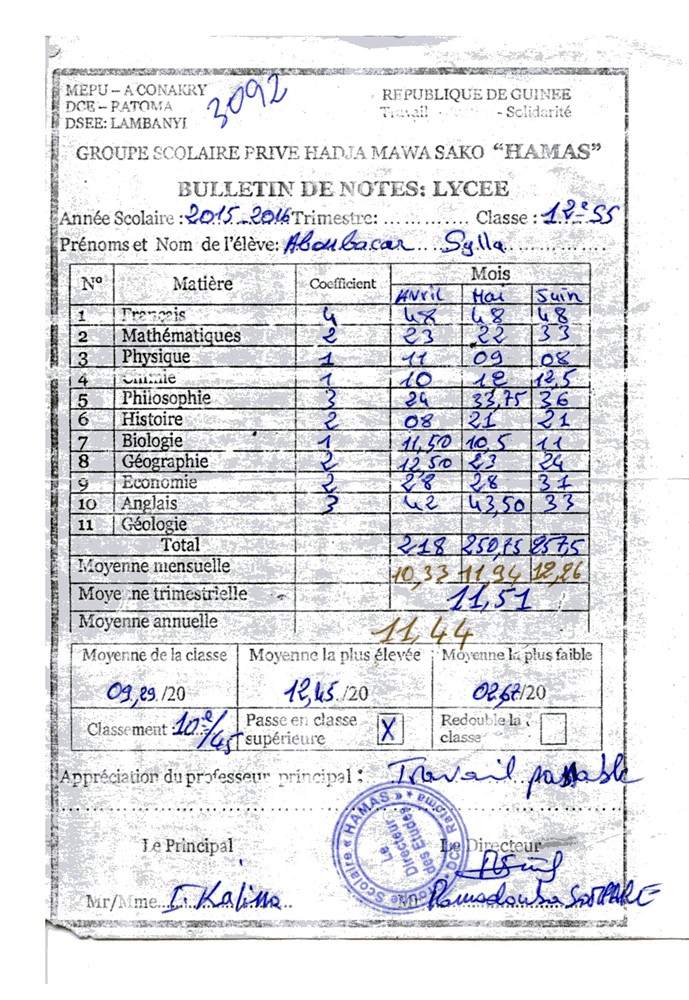 MEPU – A CONAKRY
DCE – RATOMA
DSEE: LAMBANYI
3092
REPUBLIQUE DE GUINEE
Travail - - Solidarité
GROUPE SCOLAIRE PRIVE HADJA MAWA SAKO “HAMAS”
BULLETIN DE NOTES: LYCEE
Année Scolaire : 2015-2016 Trimestre: ............. Classe : 12e SS
Prénoms et Nom de l'élève: Aboubacar Sylla
N° Matière Coefficient Mois
Avril Mai Juin
1 Français 4 48 48 48
2 Mathématiques 2 23 22 33
3 Physique 1 11 09 08
4 Chimie 1 10 12 12,5
5 Philosophie 3 24 33,75 36
6 Histoire 2 08 21 21
7 Biologie 1 11,50 10,5 11
8 Géographie 2 12,50 23 24
9 Economie 2 28 28 31
10 Anglais 3 42 43,50 33
11 Géologie
Total 218 250,75 257,5
Moyenne mensuelle 10,33 11,94 12,26
Moye ne trimestrielle 11,51
Moyenne annuelle 11,44
Moyenne de la classe Moyenne la plus élevée Moyenne la plus faible
09,29 /20 12,45 /20 02,67/20
Classement : 10e/45 Passe en classe supérieure X Redouble la classe
Appréciation du professeur principal : Travail passable
Le Principal Le Directeur
Scolaire « HAMAS » DCE Ratoma
Le Directeur des Etudes
Mr/Mme....I. Kalissa..